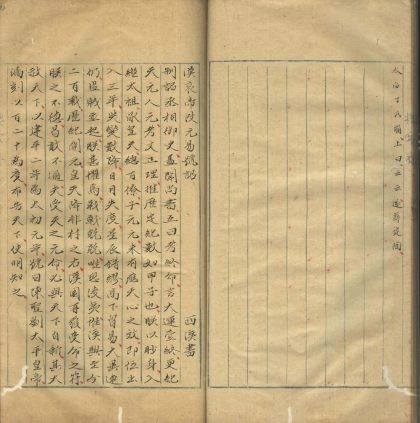 漢哀帝改元易號詔 西漢書
制詔丞相御史蓋聞尚書五曰考終命言大運壹終更紀
天元人元考文正理推歷定紀數如甲子也朕以眇身入
繼太祖承皇天總百僚子元元未有應天心之效即位出
入三年災變數降日月失度星辰錯謬高下貿易大異連
仍盜賊並起朕甚懼焉戰戰兢兢唯恐陵夷惟漢興至今
二百載歷紀開元皇天降非材之右漢國再獲受命之符
朕之不德曷敢不通夫受天之元命必與天下自新其大
赦天下以建平二年為太初元年號曰陳聖劉太平皇帝
漏刻以百二十為度布告天下使明知之